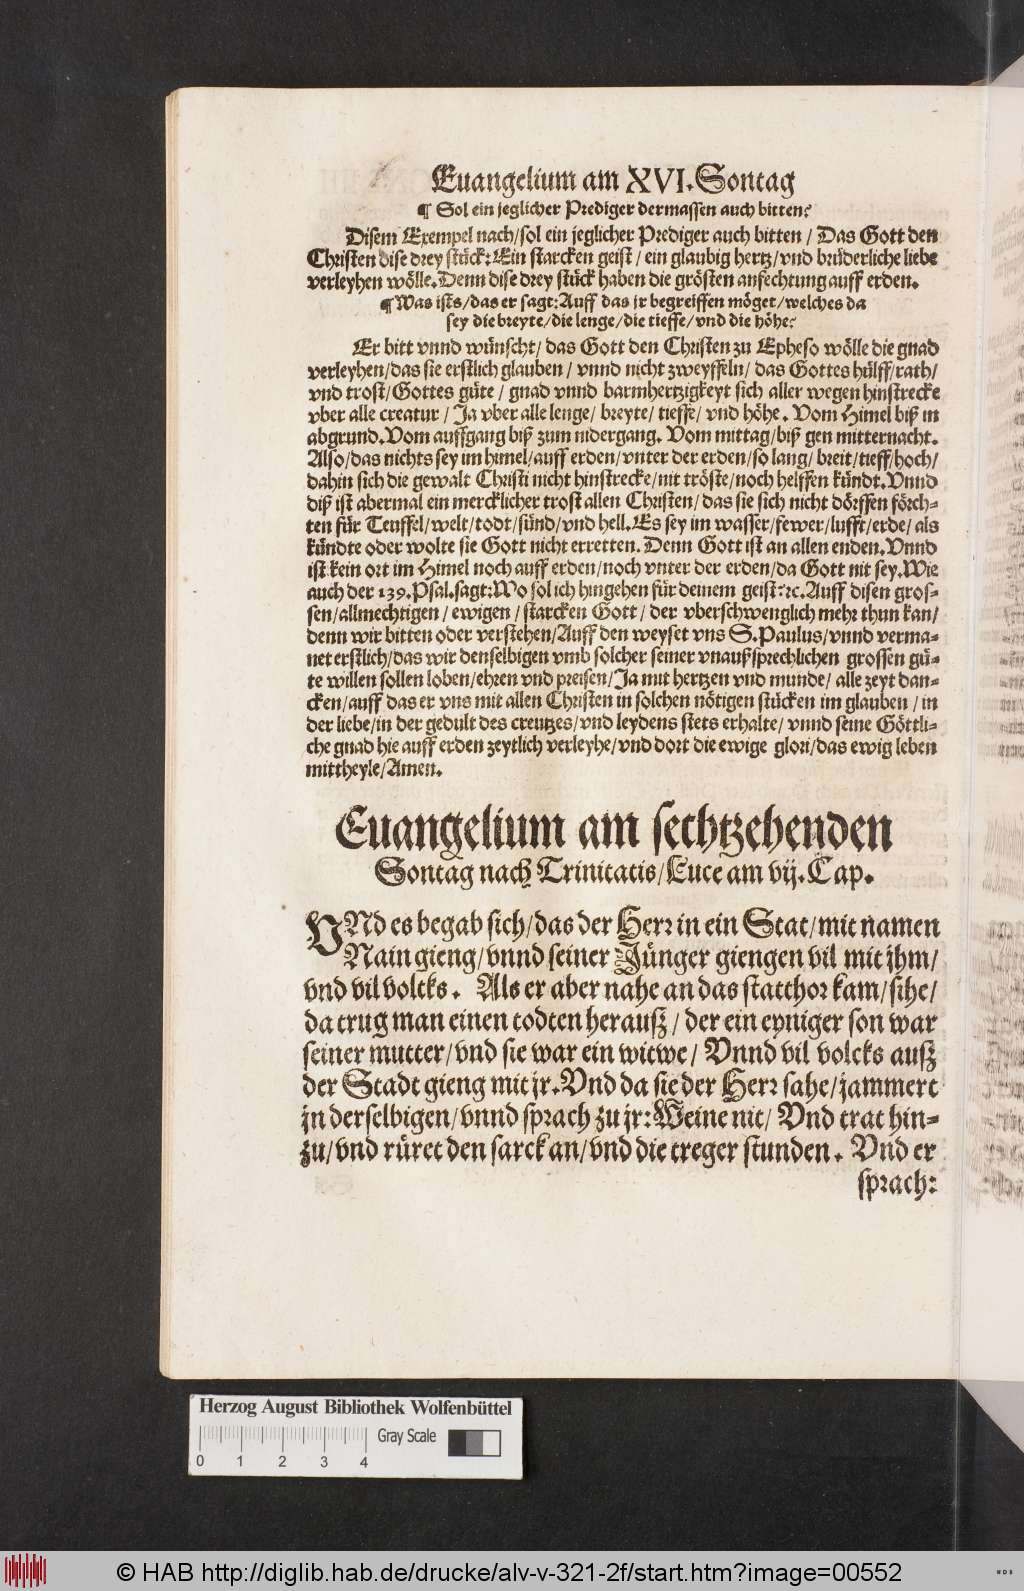 Euangelium am XVI. Sontag
¶ Sol ein jeglicher Prediger dermassen auch bitten?
Disem Exempel nach/sol ein jeglicher Prediger auch bitten / Das Gott den
Christen dise drey stück: Ein starcken geist / ein glaubig hertz/vnd brüderliche liebe
verleyhen wölle. Denn dise drey stück haben die grösten anfechtung auff erden.
¶ Was ists/das er sagt: Auff das jr begreiffen möget/welches da
sey die breyte/die lenge/die tieffe/vnd die höhe?
Er bitt vnnd wünscht/ das Gott den Christen zu Epheso wölle die gnad
verleyhen/das sie erstlich glauben / vnnd nicht zweyffeln/ das Gottes hülff/rath/
vnd trost/Gottes güte / gnad vnnd barmhertzigkeyt sich aller wegen hinstrecke
vber alle creatur / Ja vber alle lenge/ breyte/ tieffe/ vnd höhe. Vom Himel biß in
abgrund. Vom auffgang biß zum nidergang. Vom mittag/biß gen mitternacht.
Also/das nichts sey im himel/auff erden/vnter der erden/so lang/ breit/tieff/hoch/
dahin sich die gewalt Christi nicht hinstrecke/nit tröste/noch helffen kündt. Vnnd
diß ist abermal ein mercklicher trost allen Christen/das sie sich nicht dörffen förch=
ten für Teuffel/welt/todt/sünd/vnd hell. Es sey im wasser/fewer/lufft/erde/ als
kündte oder wolte sie Gott nicht erretten. Denn Gott ist an allen enden. Vnnd
ist kein ort im Himel noch auff erden/noch vnter der erden/da Gott nit sey. Wie
auch der 139. Psal. sagt: Wo sol ich hingehen für deinem geist? ꝛc. Auff disen gros=
sen/allmechtigen / ewigen / starcken Gott / der vberschwenglich mehr thun kan/
denn wir bitten oder verstehen/Auff den weyset vns S. Paulus/vnnd verma=
net erstlich/das wir denselbigen vmb solcher seiner vnaußsprechlichen grossen gü=
te willen sollen loben/ehren vnd preisen/Ja mit hertzen vnd munde/ alle zeyt dan=
cken/auff das er vns mit allen Christen in solchen nötigen stücken im glauben / in
der liebe/in der gedult des creutzes/vnd leydens stets erhalte/ vnnd seine Göttli=
che gnad hie auff erden zeytlich verleyhe/vnd dort die ewige glori/das ewig leben
mittheyle/Amen.
Euangelium am sechtzehenden
Sontag nach Trinitatis/Luce am vij. Cap.
VNd es begab sich/das der Herr in ein Stat/mit namen
Nain gieng/vnnd seiner Jünger giengen vil mit jhm/
vnd vil volcks. Als er aber nahe an das statthor kam/sihe/
da trug man einen todten herauß/ der ein eyniger son war
seiner mutter/vnd sie war ein witwe/ Vnnd vil volcks auß
der Stadt gieng mit jr. Vnd da sie der Herr sahe/jammert
jn derselbigen/vnnd sprach zu jr: Weine nit/ Vnd trat hin=
zu/vnd rüret den sarck an/vnd die treger stunden. Vnd er
sprach:
Herzog August Bibliothek Wolfenbüttel
Gray Scale
0 1 2 3 4
© HAB http://diglib.hab.de/drucke/alv-v-321-2f/start.htm?image=00552